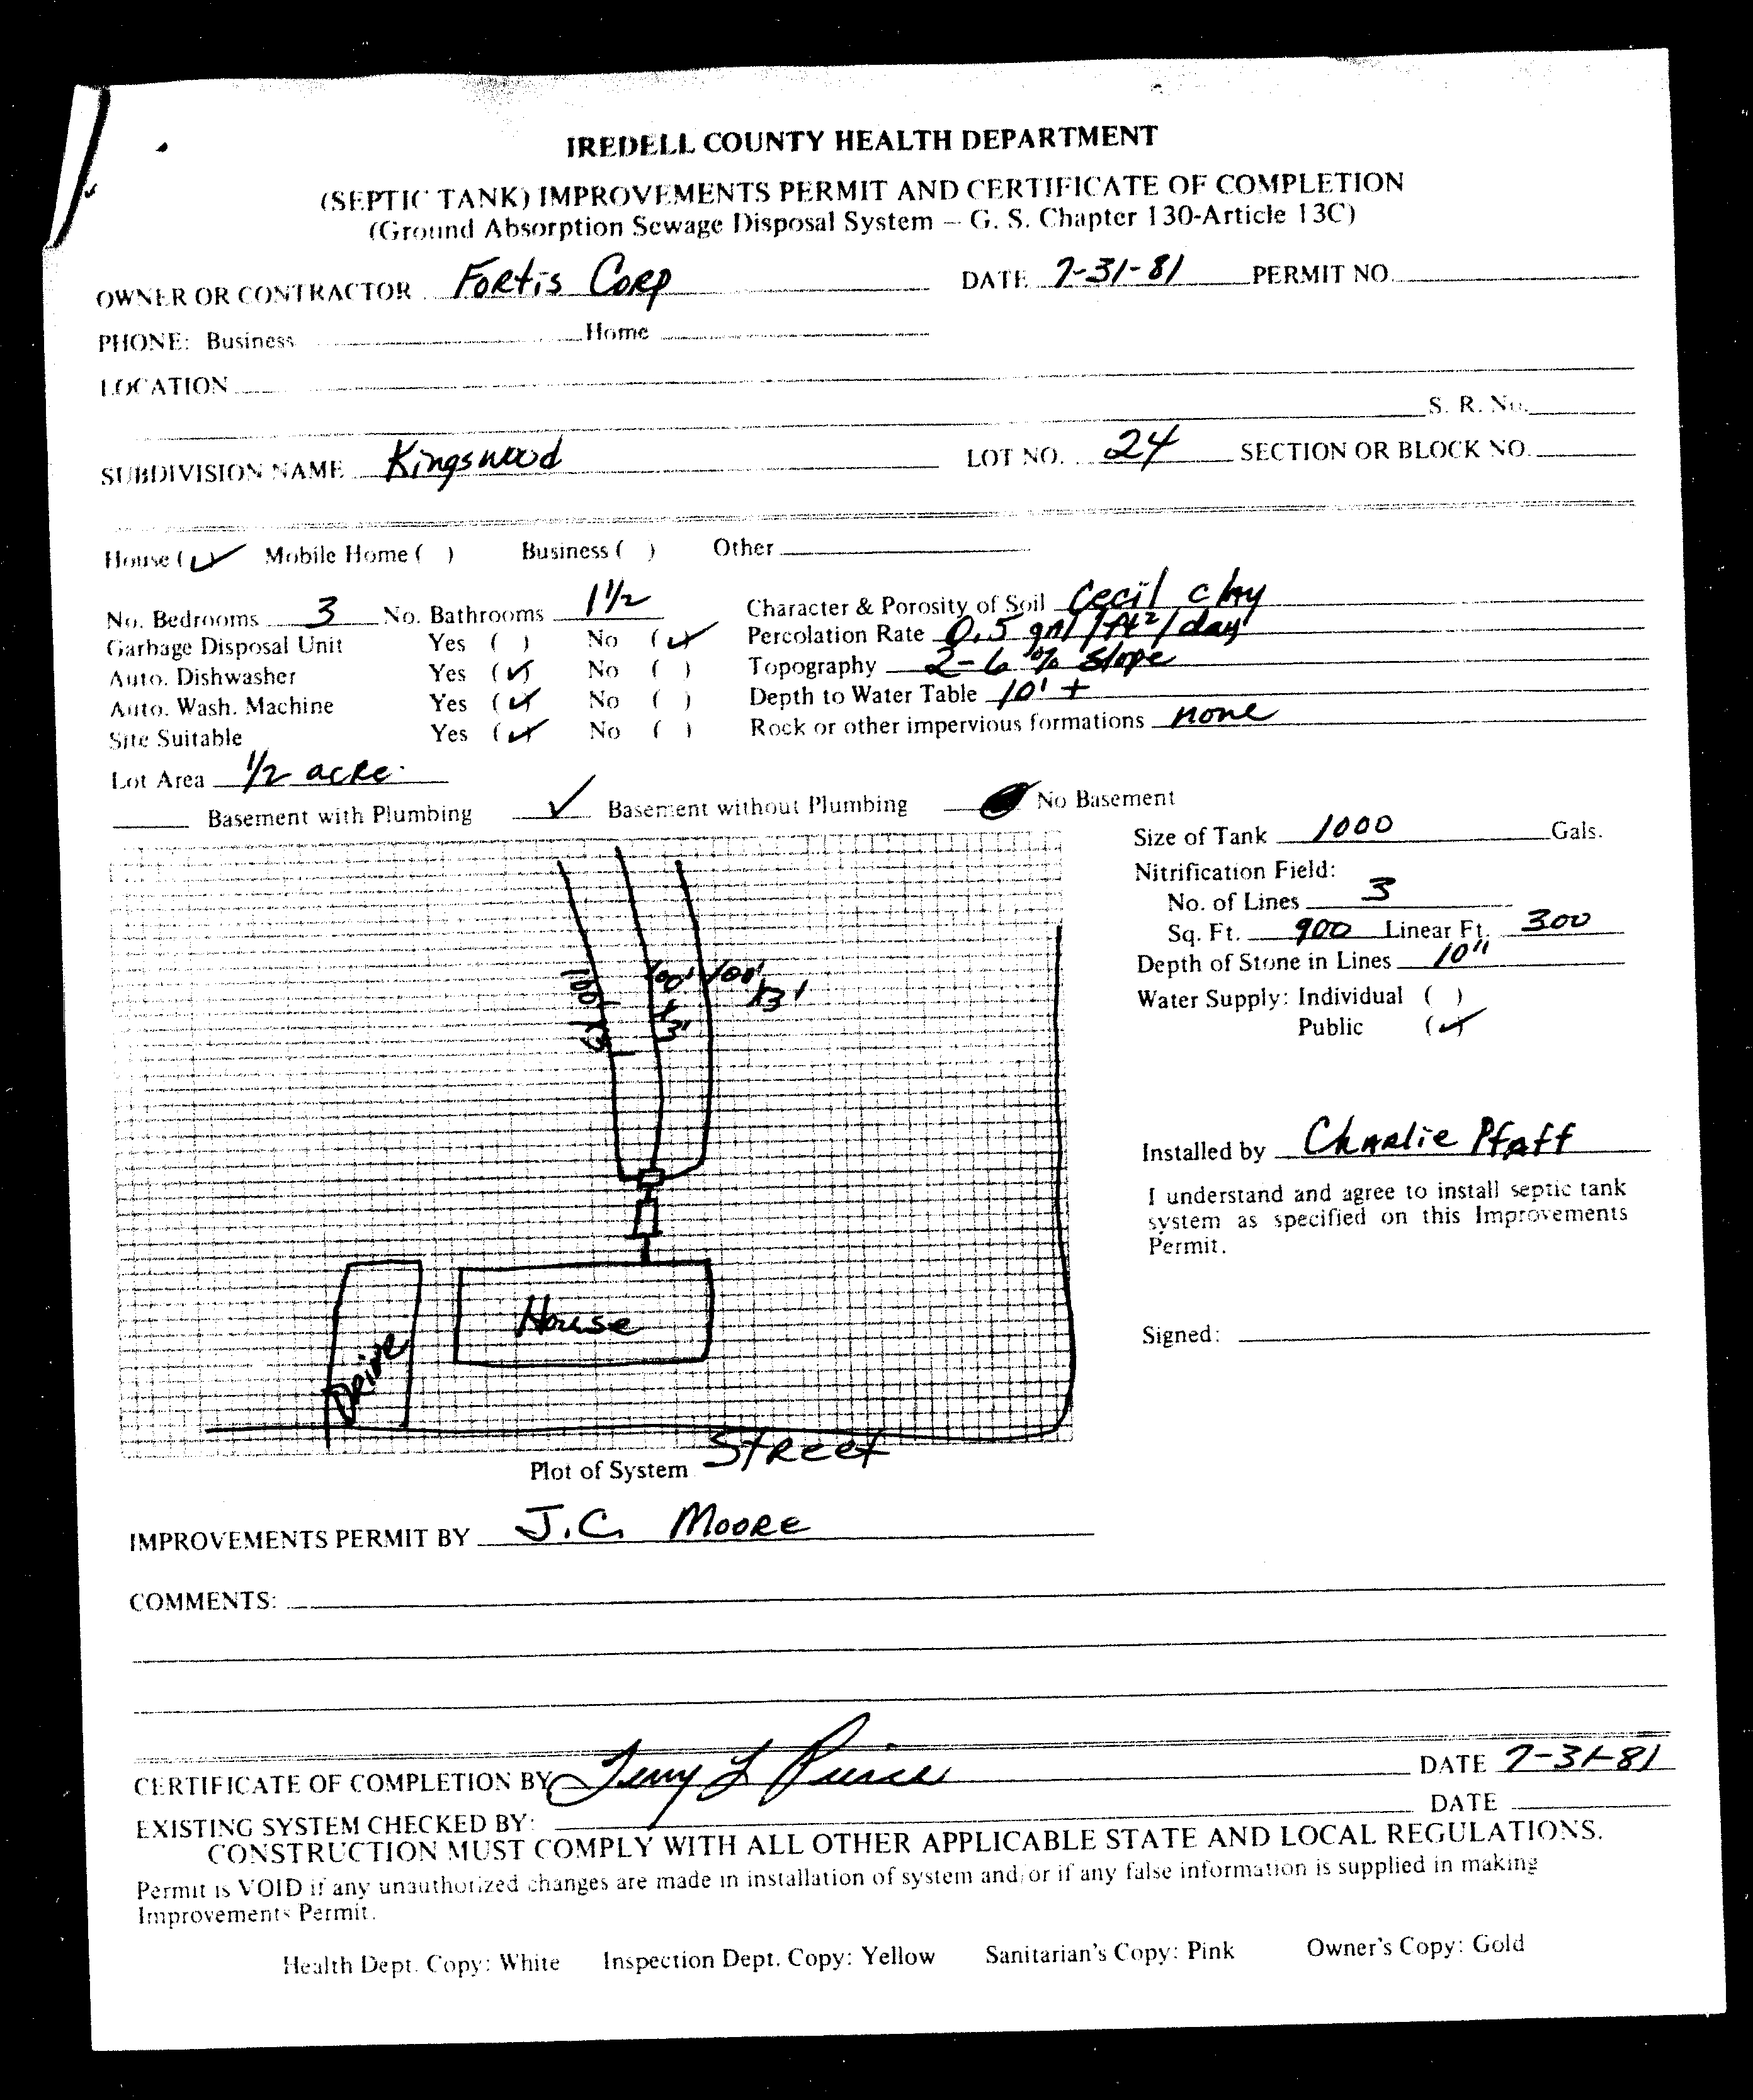 IREDELL COUNTY HEALTH DEPARTMENT
(SEPTIC TANK) IMPROVEMENTS PERMIT AND CERTIFICATE OF COMPLETION
(Ground Absorption Sewage Disposal System — G. S. Chapter 130-Article 13C)
OWNER OR CONTRACTOR Fortis Corp DATE 7-31-81 PERMIT NO.
PHONE: Business Home
LOCATION
S. R. No.
SUBDIVISION NAME Kingswood LOT NO. 24 SECTION OR BLOCK NO.
House (✓) Mobile Home ( ) Business ( ) Other
No. Bedrooms 3 No. Bathrooms 1 1/2 Character & Porosity of Soil Cecil clay
Garbage Disposal Unit Yes ( ) No (✓) Percolation Rate 0.5 gal/ft²/day
Auto. Dishwasher Yes (✓) No ( ) Topography 2-6 % Slope
Auto. Wash. Machine Yes (✓) No ( ) Depth to Water Table 10' +
Site Suitable Yes (✓) No ( ) Rock or other impervious formations none
Lot Area 1/2 acre
Basement with Plumbing ✓ Basement without Plumbing No Basement
Size of Tank 1000 Gals.
Nitrification Field:
No. of Lines 3
Sq. Ft. 900 Linear Ft. 300
Depth of Stone in Lines 10"
Water Supply: Individual ( )
Public (✓)
100' x 3' 100' x 3' 100' x 3'
Installed by Charlie Pfaff
I understand and agree to install septic tank
system as specified on this Improvements
Permit.
House
Drive
Signed:
Plot of System Street
IMPROVEMENTS PERMIT BY J.C. Moore
COMMENTS:
CERTIFICATE OF COMPLETION BY Terry L Pierce DATE 7-31-81
EXISTING SYSTEM CHECKED BY: DATE
CONSTRUCTION MUST COMPLY WITH ALL OTHER APPLICABLE STATE AND LOCAL REGULATIONS.
Permit is VOID if any unauthorized changes are made in installation of system and/or if any false information is supplied in making
Improvements Permit.
Health Dept. Copy: White Inspection Dept. Copy: Yellow Sanitarian's Copy: Pink Owner's Copy: Gold